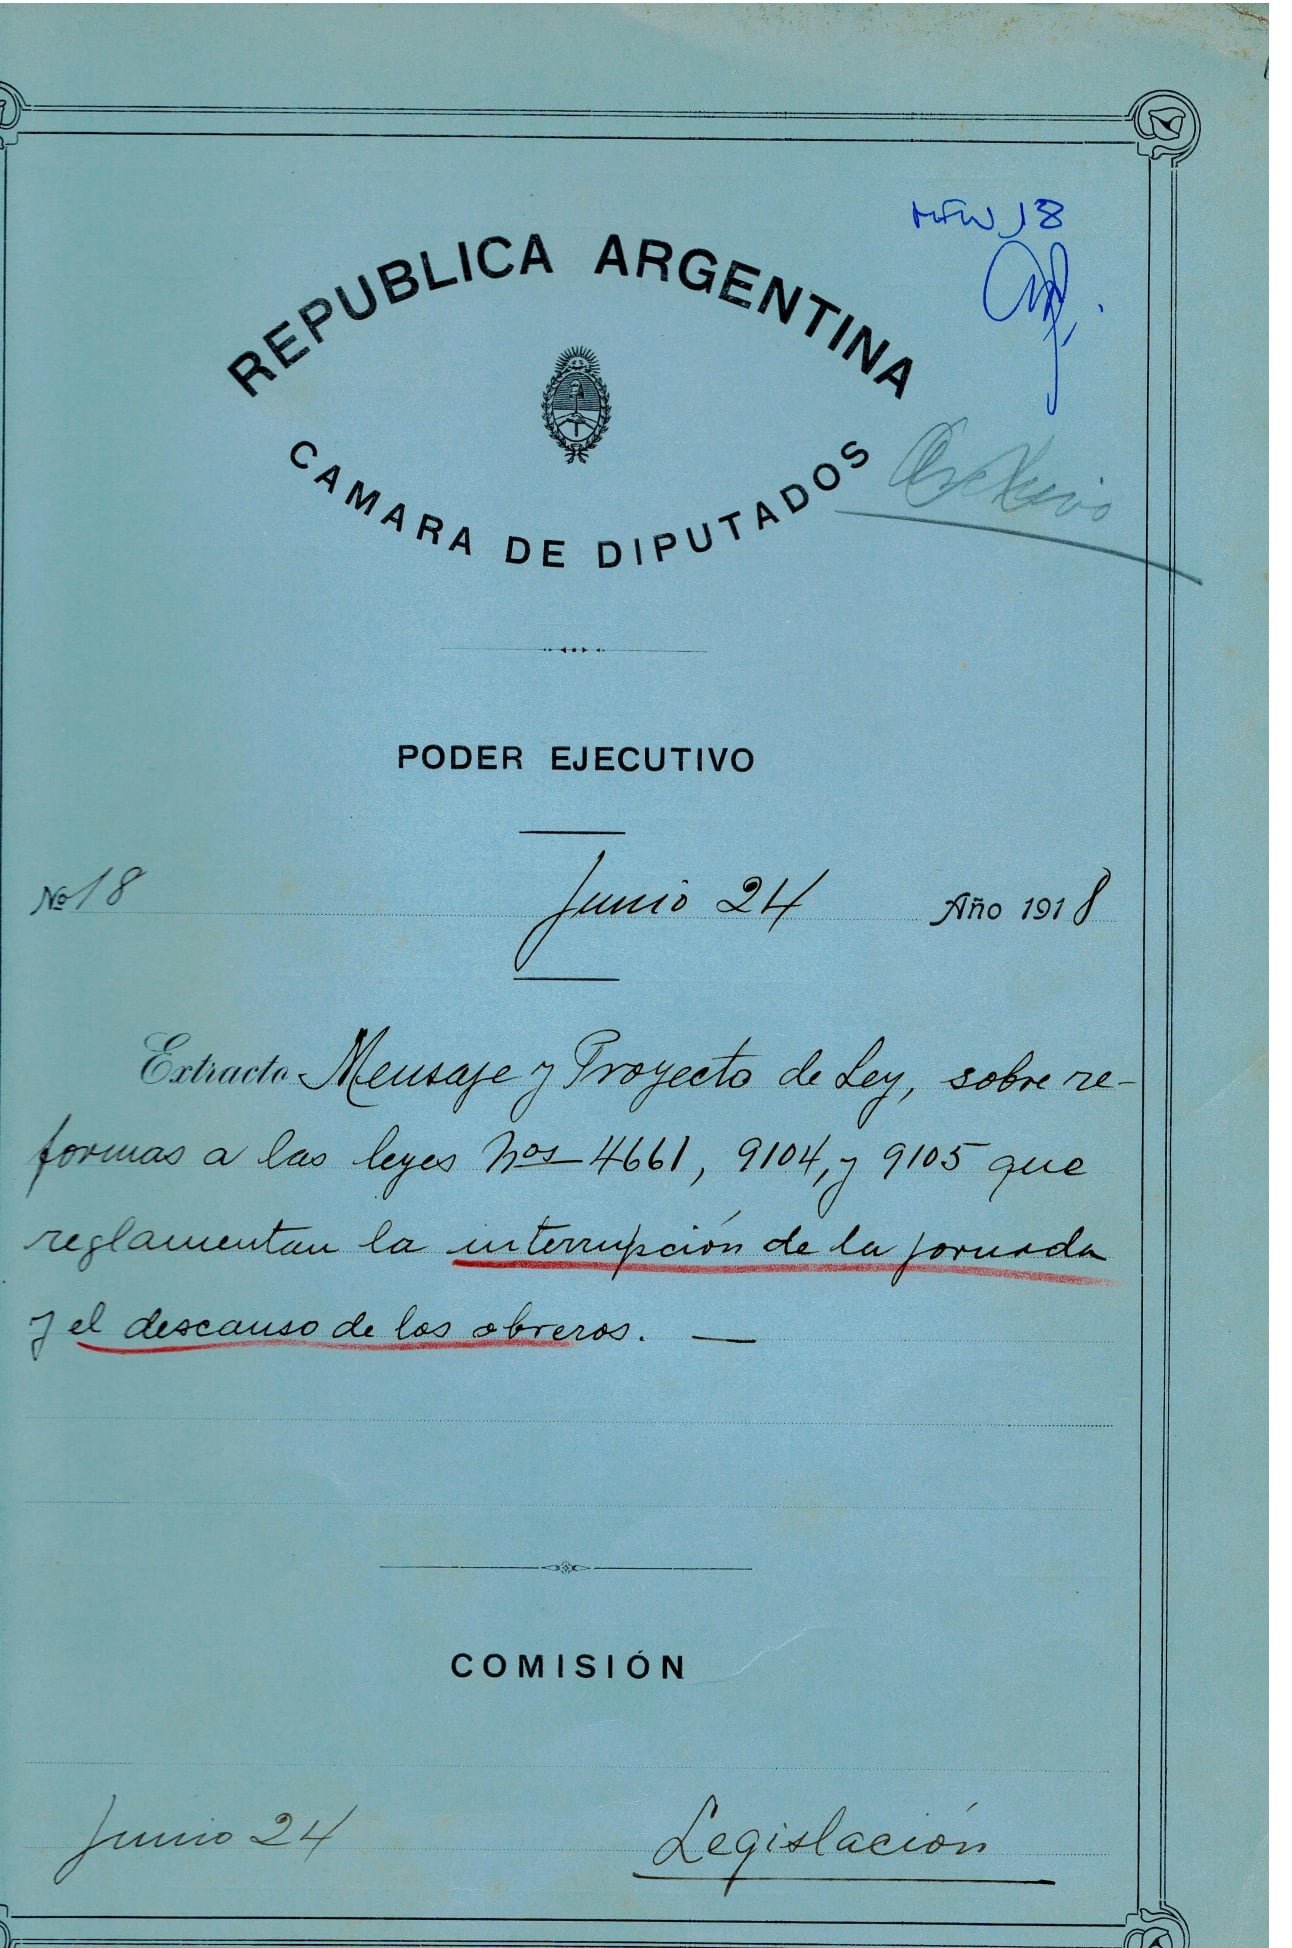 18
REPUBLICA ARGENTINA
CAMARA DE DIPUTADOS
Archivo
PODER EJECUTIVO
No 18 Junio 24 Año 1918
Extracto Mensaje y Proyecto de Ley, sobre re-
formas a las leyes Nos 4661, 9104, y 9105 que
reglamentan la interrupción de la jornada
y el descanso de los obreros. —
COMISIÓN
Junio 24 Legislación